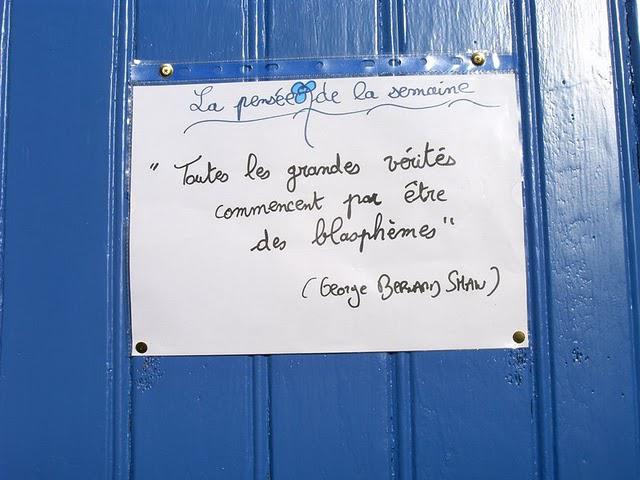 La pensée de la semaine
" Toutes les grandes vérités
commencent par être
des blasphèmes "
(George BERNARD SHAW)